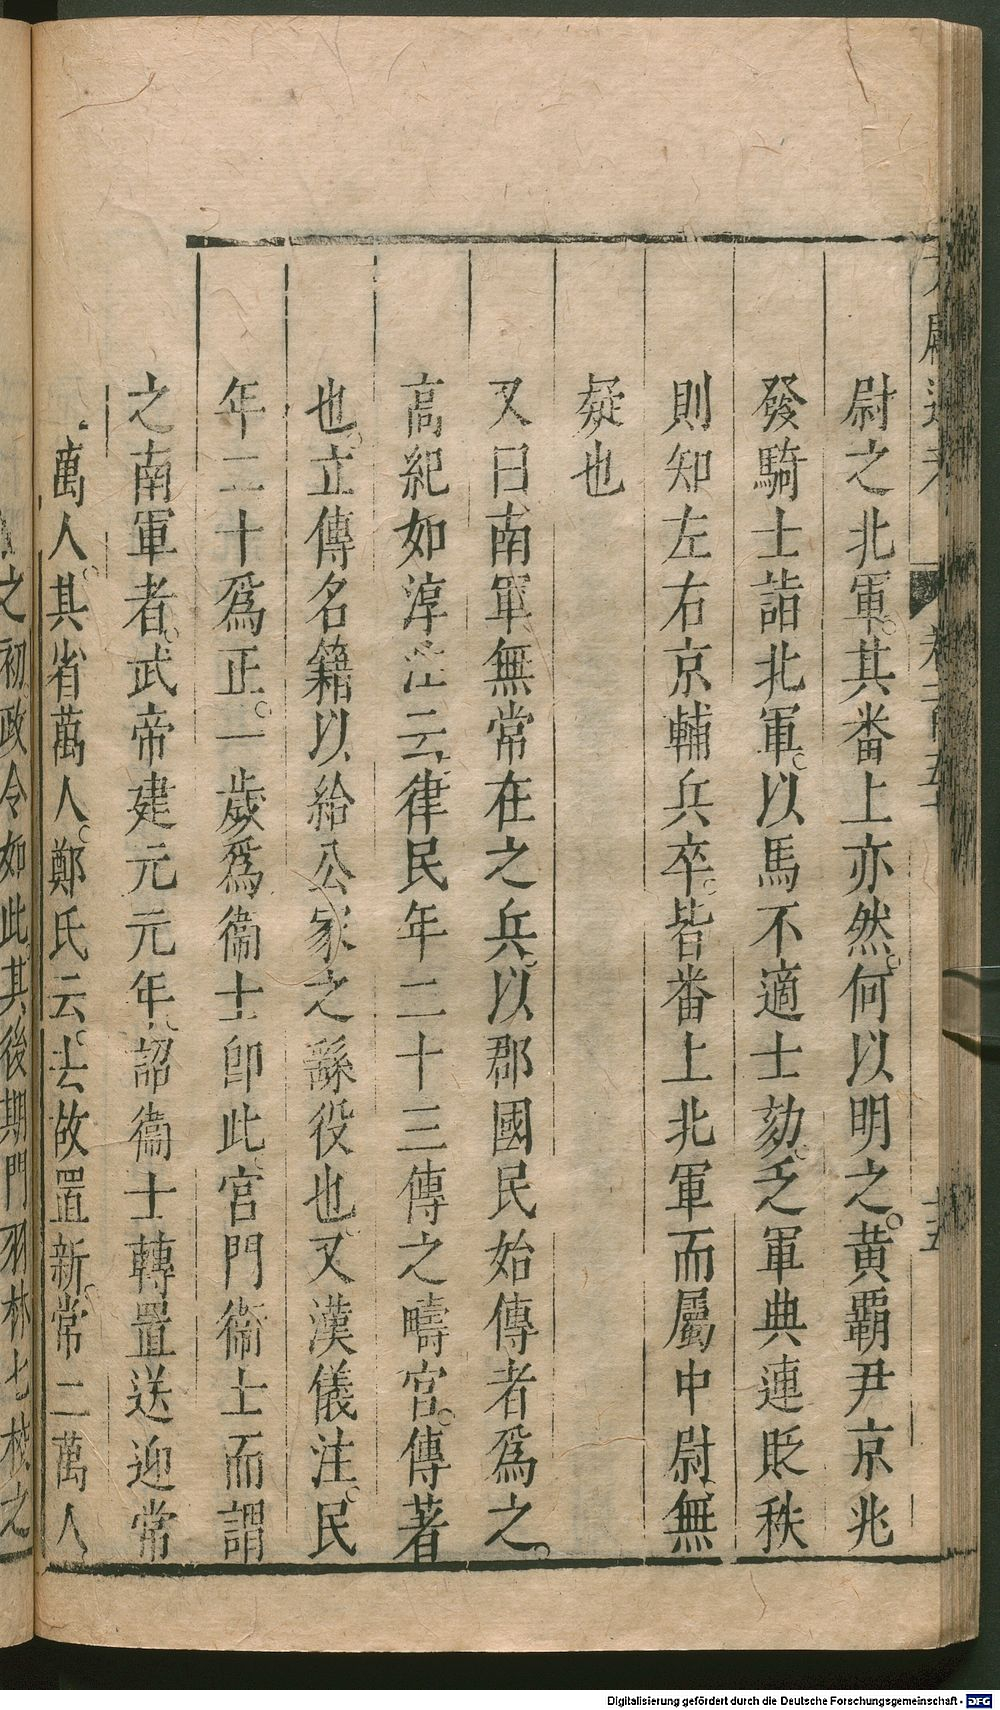 尉之北軍其番上亦然何以明之黄覇尹京兆
發騎士詣北軍以馬不適士劾乏軍典連貶秩
則知左右京輔兵卒皆番上北軍而屬中尉無
疑也
又曰南軍無常在之兵以郡國民始傳者爲之
高紀如淳注云律民年二十三傳之疇官傳著
也立傳名籍以給公家之繇役也又漢儀注民
年二十爲正一歲爲衞士卽此宫門衞士而謂
之南軍者武帝建元元年詔衞士轉置送迎常
二萬人其省萬人鄭氏云去故置新常二萬人
之初政令如此其後期門羽林七校之
卷一百五十
十五
Digitalisierung gefördert durch die Deutsche Forschungsgemeinschaft - DFG